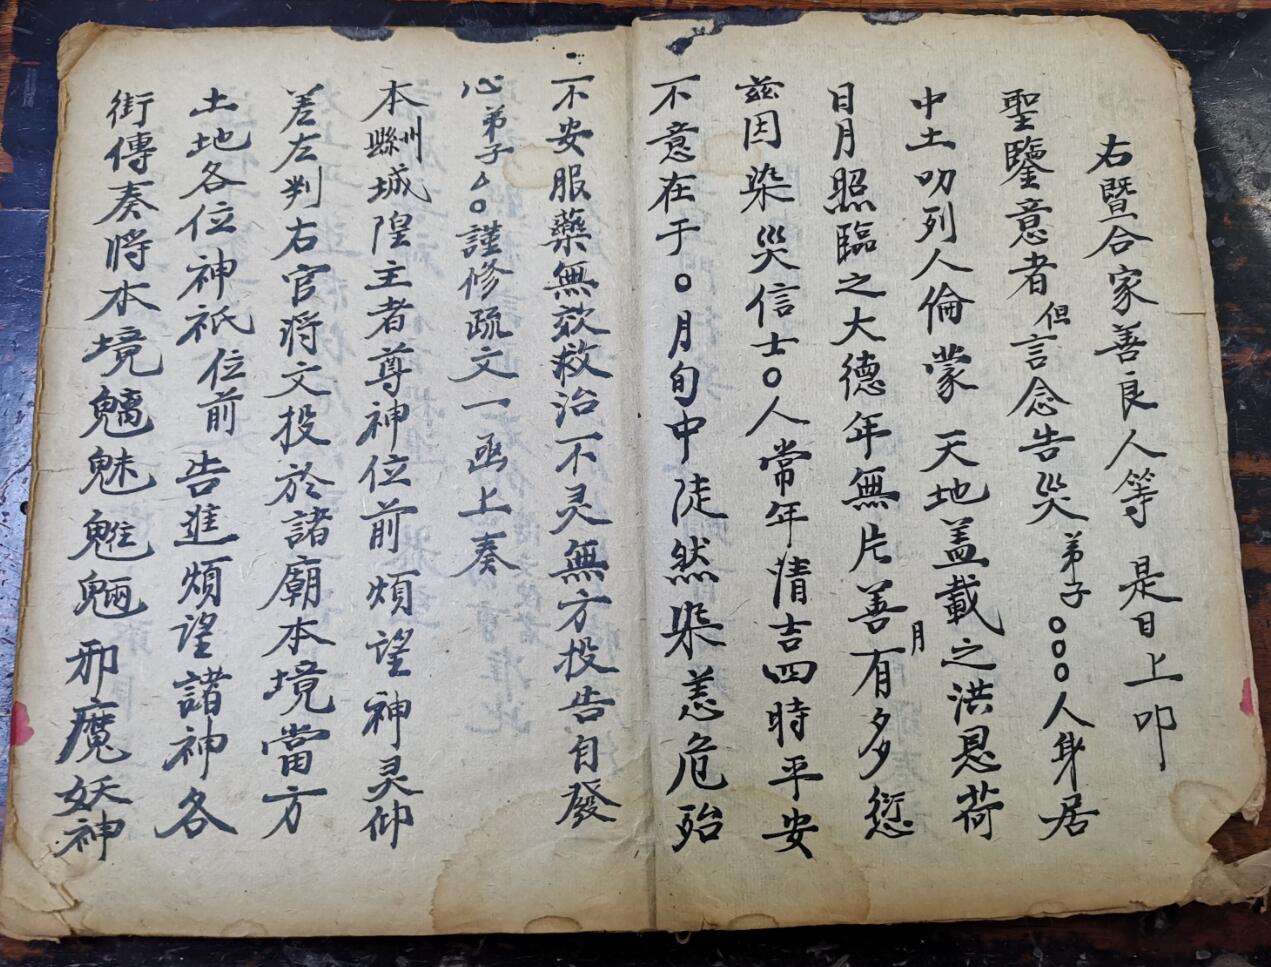 右暨合家善良人等 是日上叩
聖鑒意者但言念告災弟子○○○人身居
中土叨列人倫蒙 天地盖載之洪恩荷
日月照臨之大德年無片善月有多愆
茲因染災信士○人常年清吉四時平安
不意在于○月旬中陡然染恙危殆
不安服藥無効救治不灵無方投告自發
心弟子厶○謹修疏文一函上奏
本州縣城隍主者尊神位前 煩望神灵仰
差左判右官將文投於諸廟本境當方
土地各位神祇位前 告進煩望諸神各
街傳奏將本境魑魅魋魎邪魔妖神